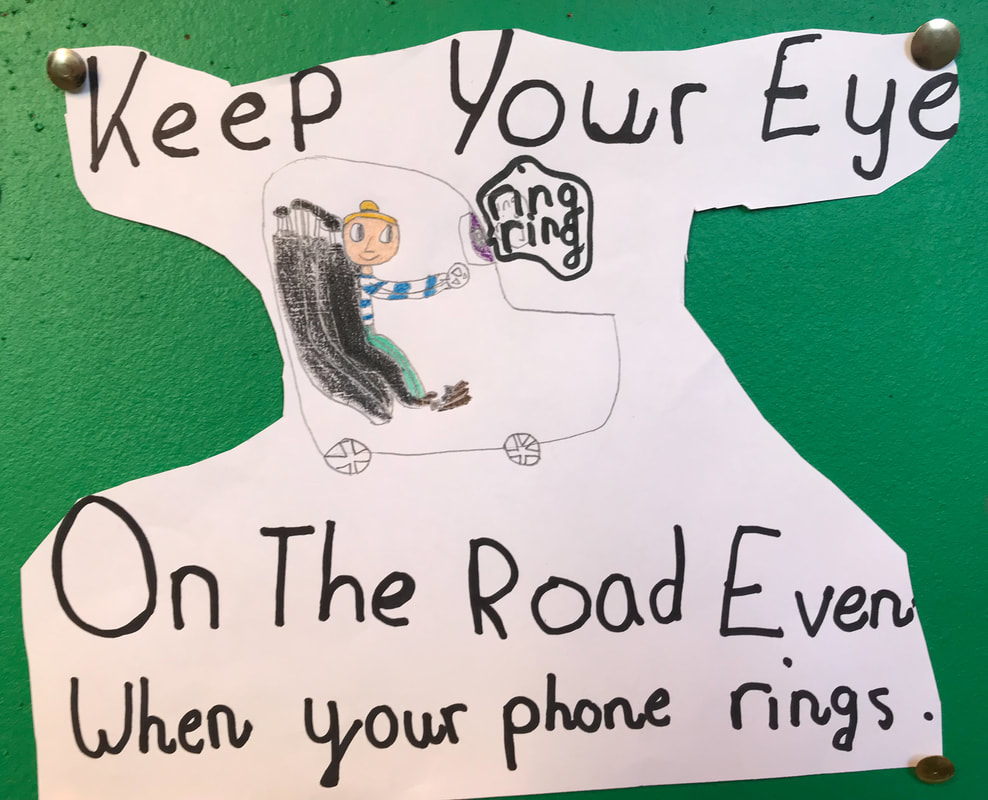 Keep Your Eye
ring
ring
On The Road Even
When your phone rings.